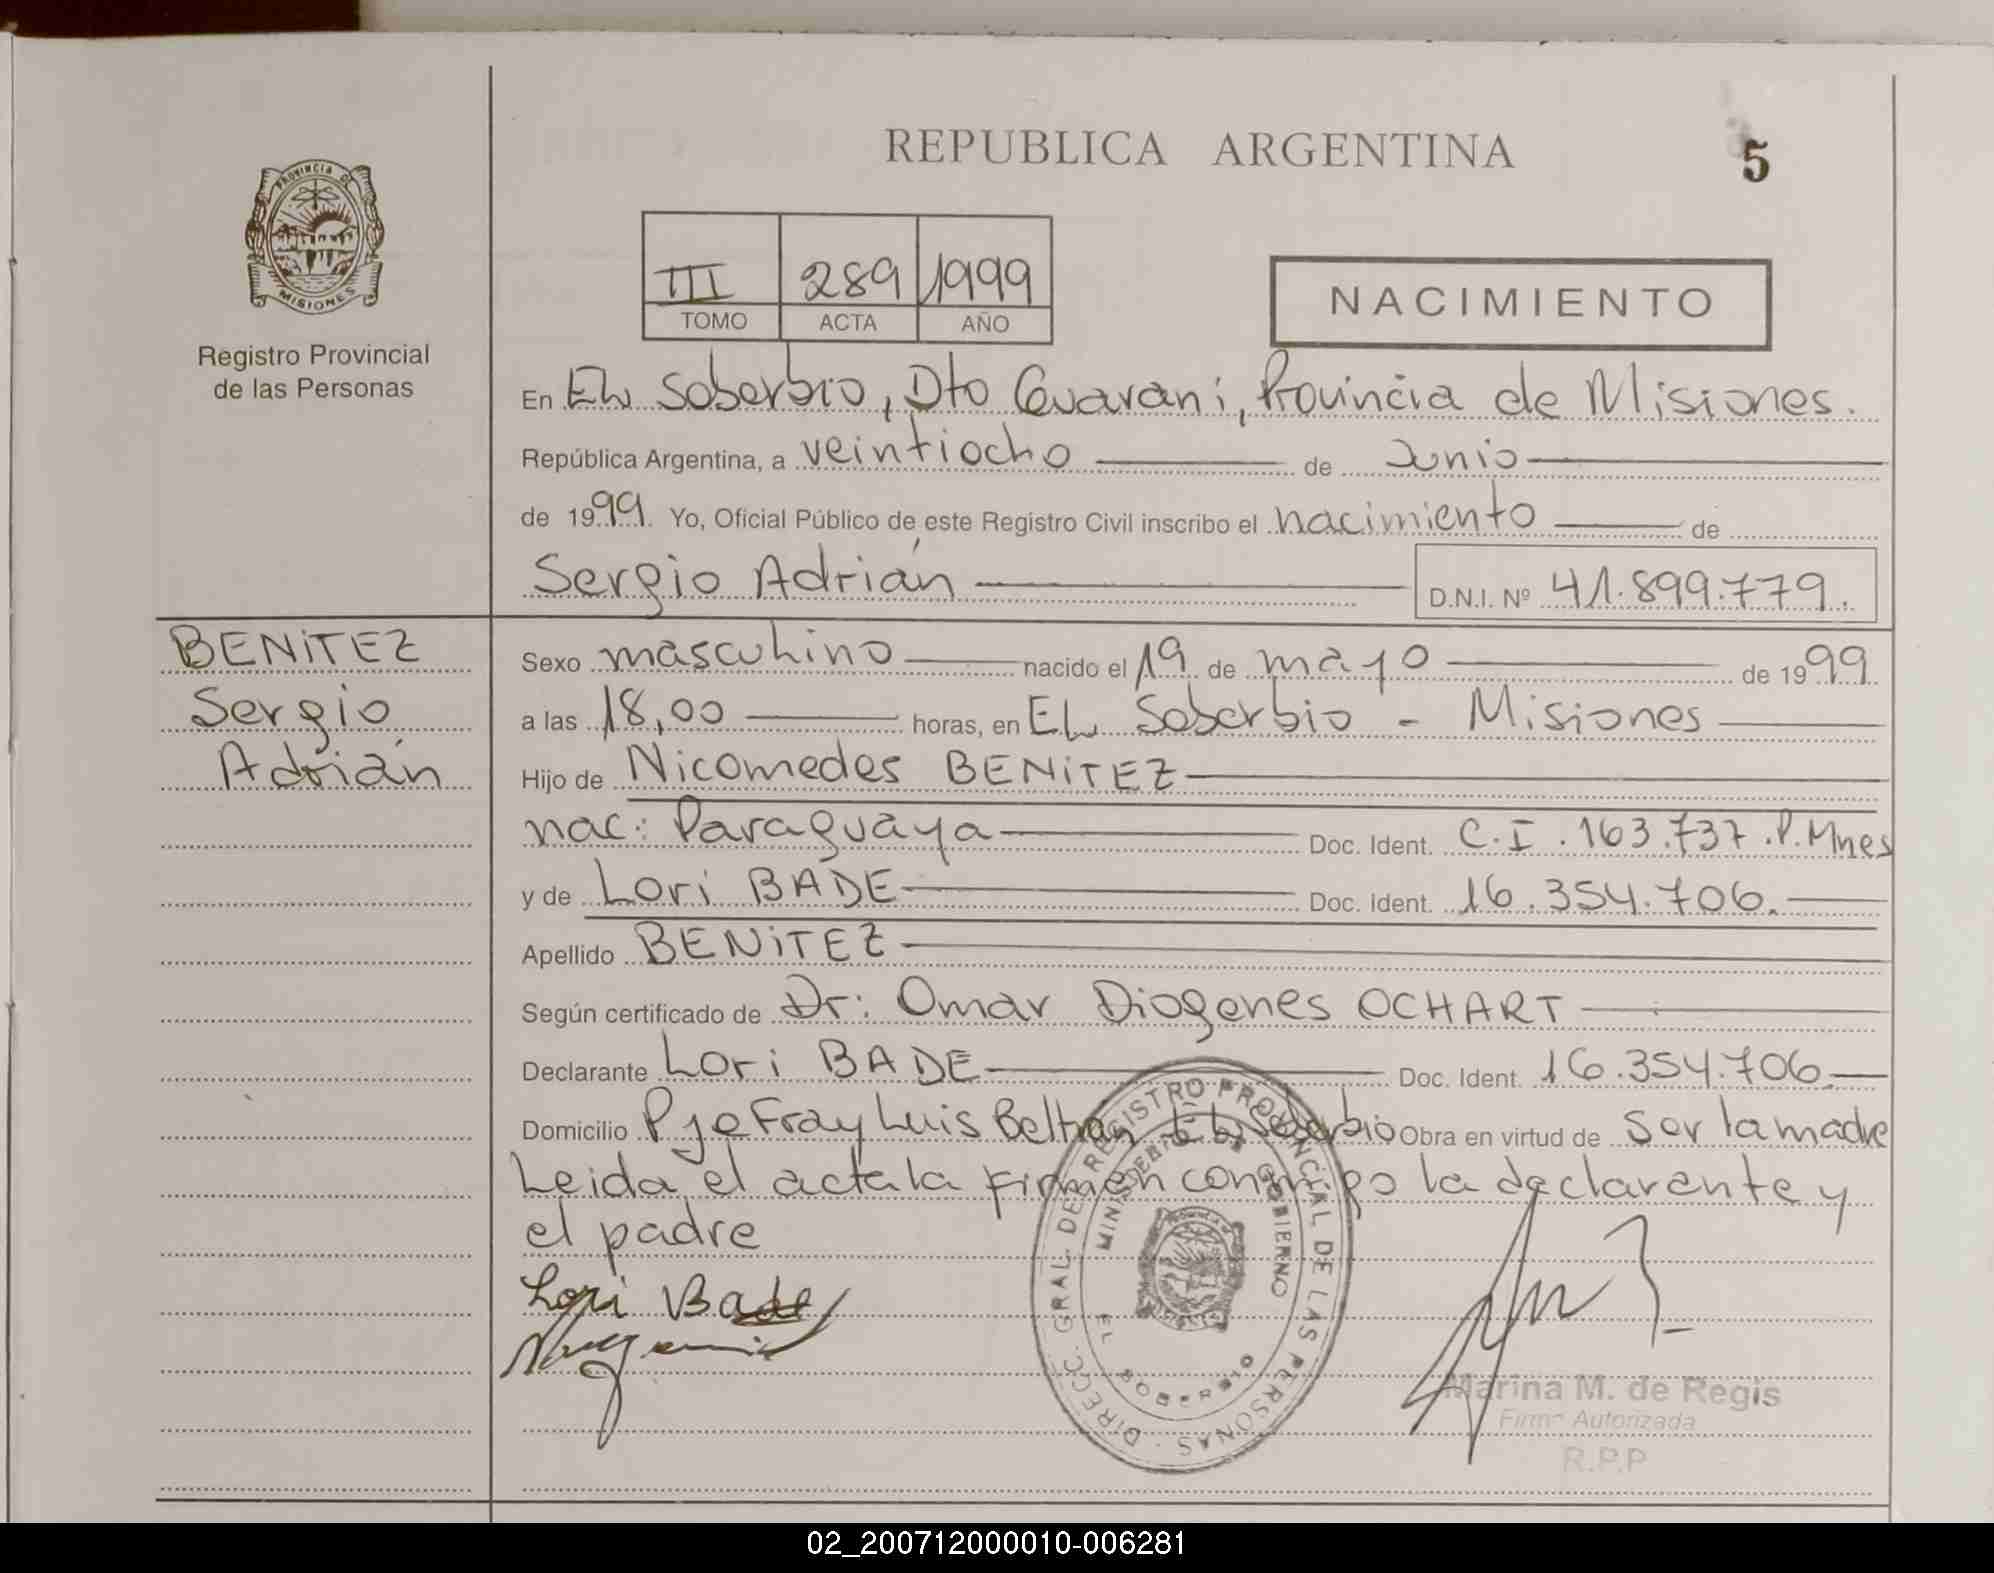 REPUBLICA ARGENTINA
5
PROVINCIA DE
MISIONES
Registro Provincial
de las Personas
III 289 1999
TOMO ACTA AÑO
NACIMIENTO
En El Soberbio, Dto Guaraní, Provincia de Misiones.
República Argentina, a veintiocho de Junio
de 1999. Yo, Oficial Público de este Registro Civil inscribo el nacimiento de
Sergio Adrián D.N.I. Nº 41.899.779.
BENiTEZ
Sergio
Adrián
Sexo masculino nacido el 19 de mayo de 1999
a las 18,00 horas, en El Soberbio - Misiones
Hijo de Nicomedes BENiTEZ
nac: Paraguaya Doc. Ident. C.I. 163.737.P.Mnes
y de Lori BADE Doc. Ident. 16.354.706.
Apellido BENiTEZ
Según certificado de Dr: Omar Diogenes OCHART
Declarante Lori BADE Doc. Ident. 16.354.706.
Domicilio Pje Fray Luis Beltran El Soberbio Obra en virtud de ser la madre
Leida el acta la firman conmigo la declarante y
el padre
Lori Bade
DIRECC. GRAL. DE REGISTRO PROVINCIAL DE LAS PERSONAS
MINISTERIO DE GOBIERNO
EL SOBERBIO
Marina M. de Regis
Firma Autorizada
R.P.P
02_200712000010-006281